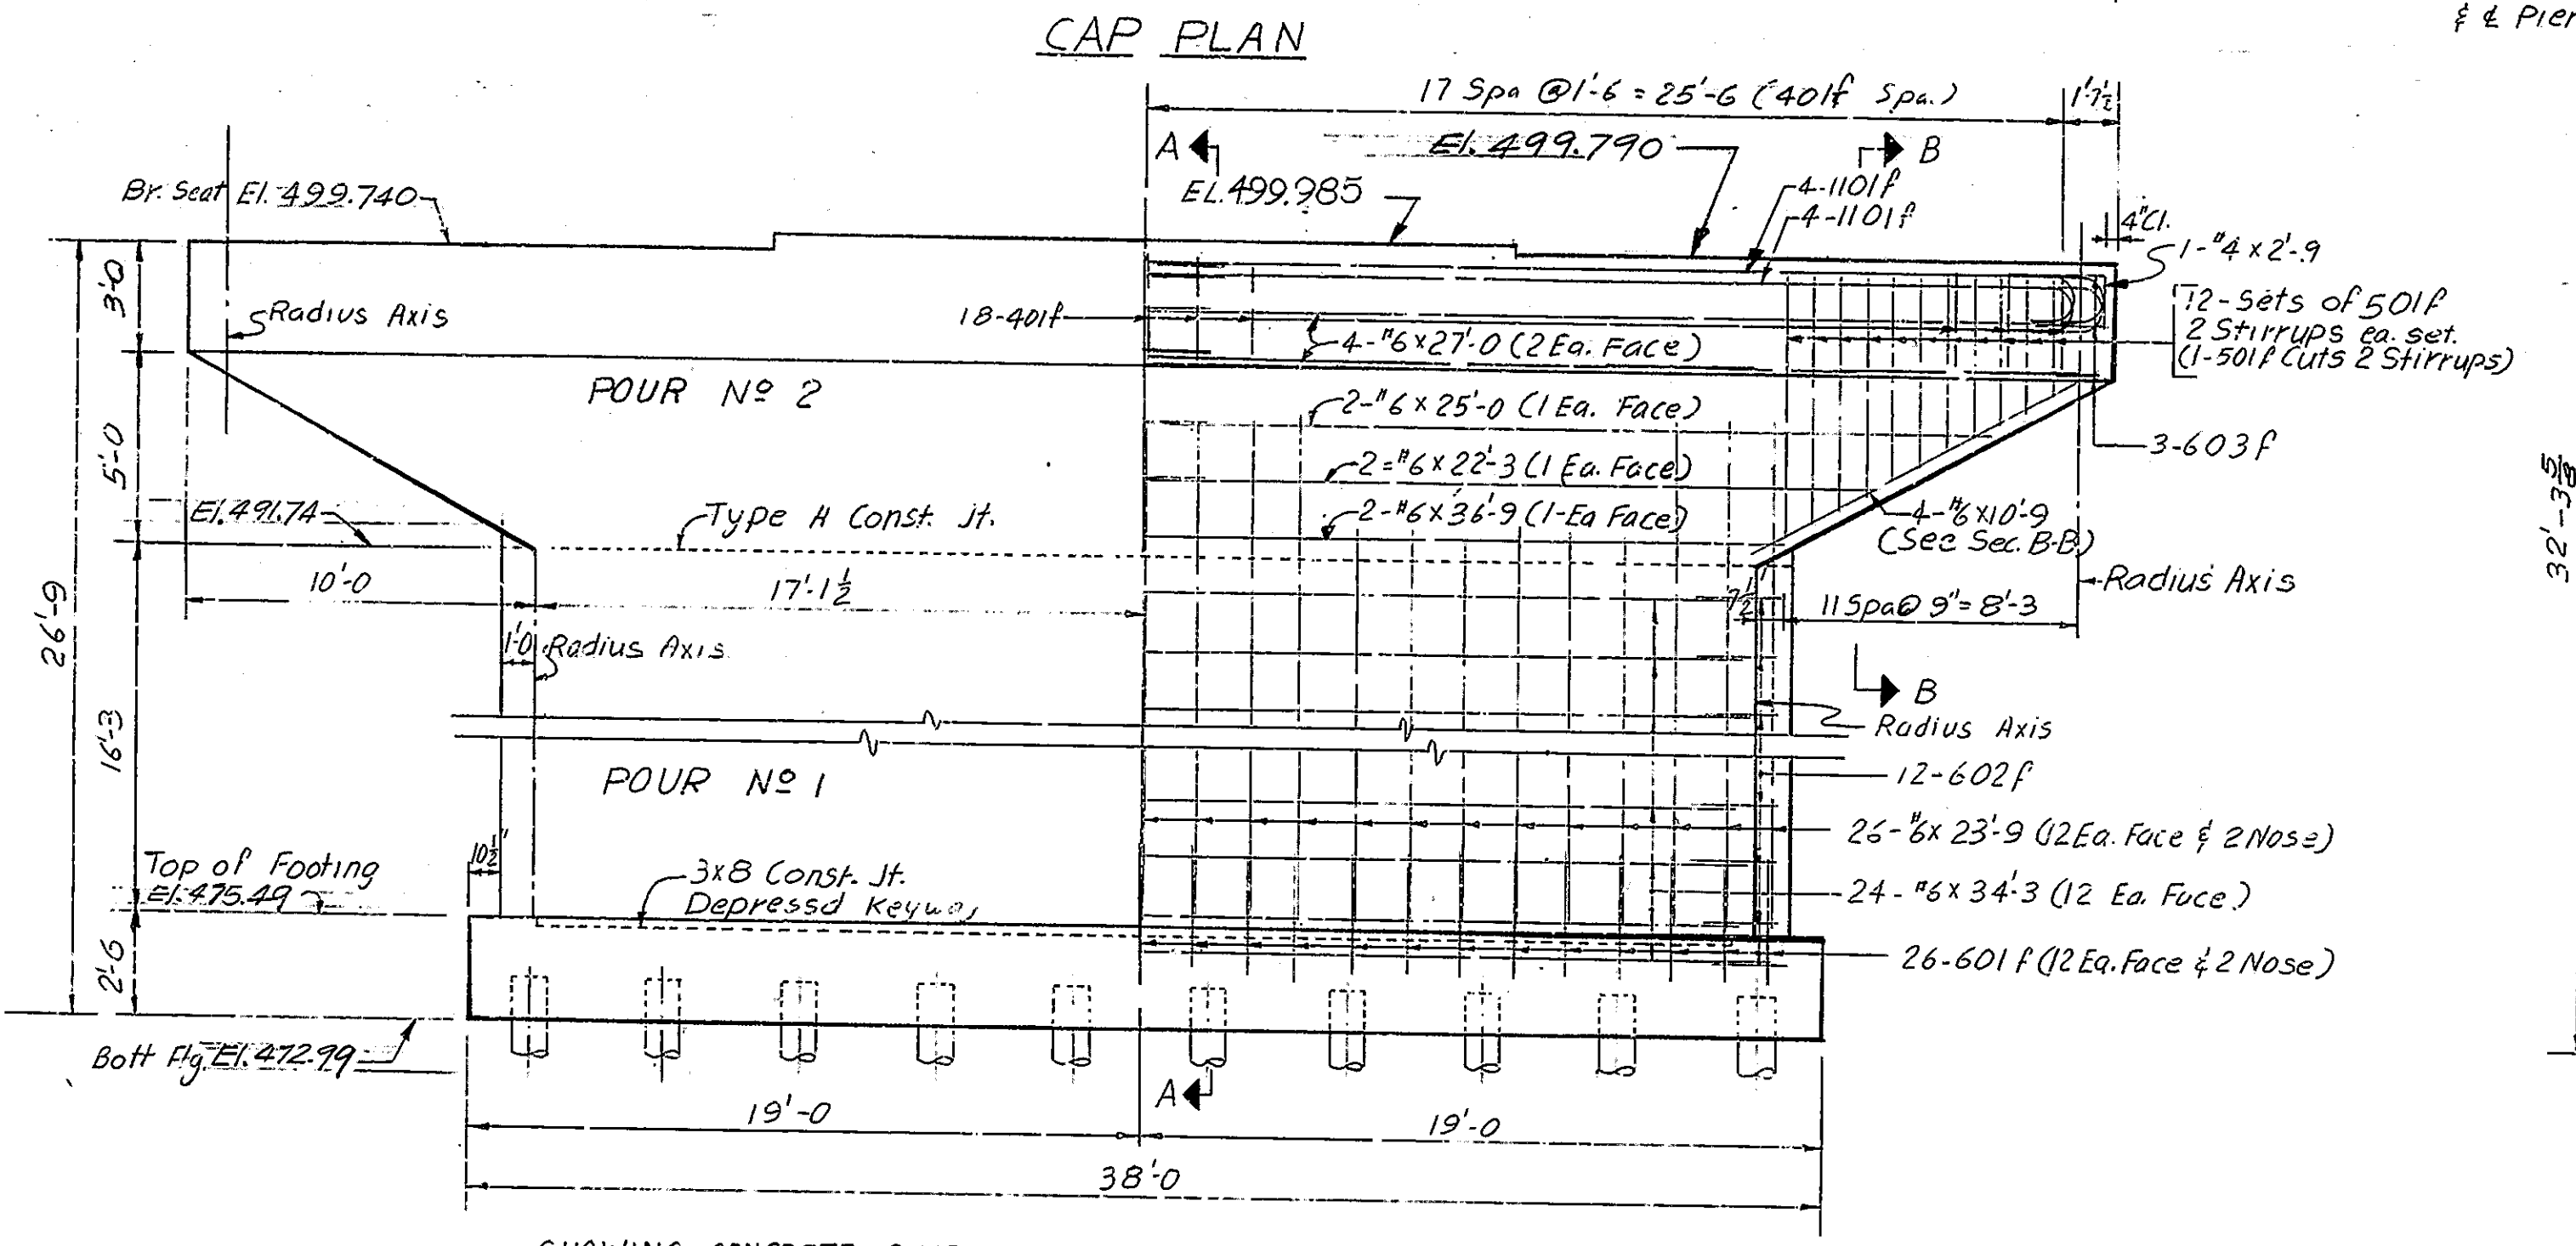 CAP PLAN
& ℄ Pier
17 Spa @1'-6 = 25'-6 (401f Spa.)
1'-7½
A
El. 499.790
B
Br. Seat El. 499.740
EL. 499.985
4-1101f
4-1101f
4"Cl.
1-#4 x 2'-9
3'-0
Radius Axis
18-401f
4-#6x27'-0 (2 Ea. Face)
12-Sets of 501f
2 Stirrups ea. set.
(1-501f Cuts 2 Stirrups)
POUR Nº 2
2-#6 x 25'-0 (1 Ea. Face)
5'-0
3-603f
2=#6 x 22'-3 (1 Ea. Face)
El. 491.74
Type H Const. Jt.
2-#6 x 36'-9 (1-Ea Face)
4-#6x10'-9
(See Sec. B-B)
32'-3⅝
10'-0
17'-1½
7½
11 Spa @ 9"= 8'-3
Radius Axis
26'-9
1'-0
Radius Axis
B
Radius Axis
16'-3
POUR Nº 1
12-602f
26-#6x 23'-9 (12 Ea. Face & 2 Nose)
10½"
Top of Footing
El. 475.49
3x8 Const. Jt.
Depressd
24-#6x 34'-3 (12 Ea. Face)
2'-6
26-601f (12 Ea. Face & 2 Nose)
Bott Ftg. El. 472.99
A
19'-0
19'-0
38'-0